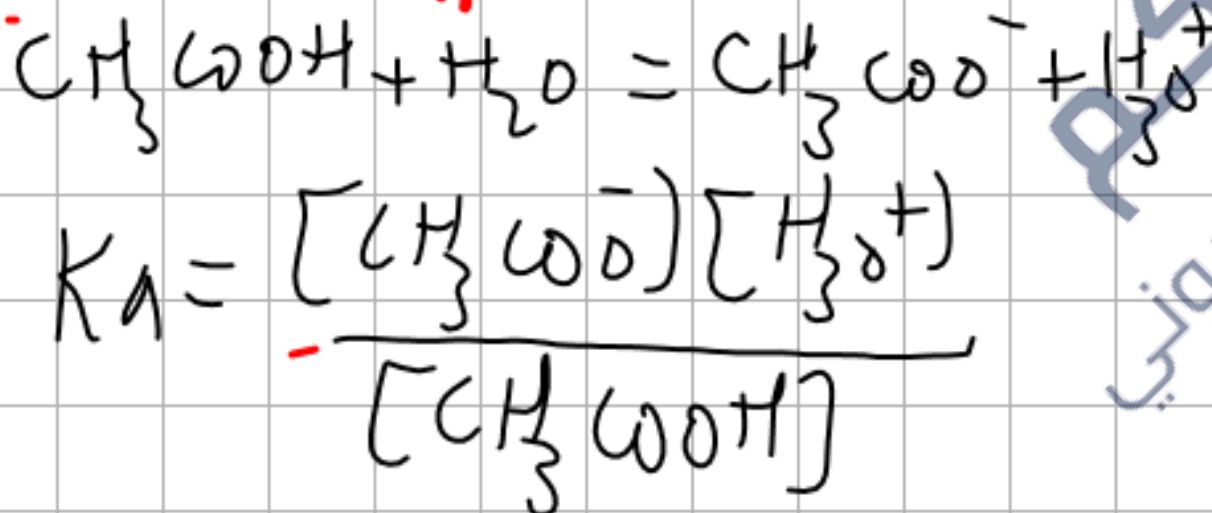 CH₃COOH + H₂O = CH₃COO⁻ + H₃O⁺
Ka = [CH₃COO⁻][H₃O⁺]
[CH₃COOH]